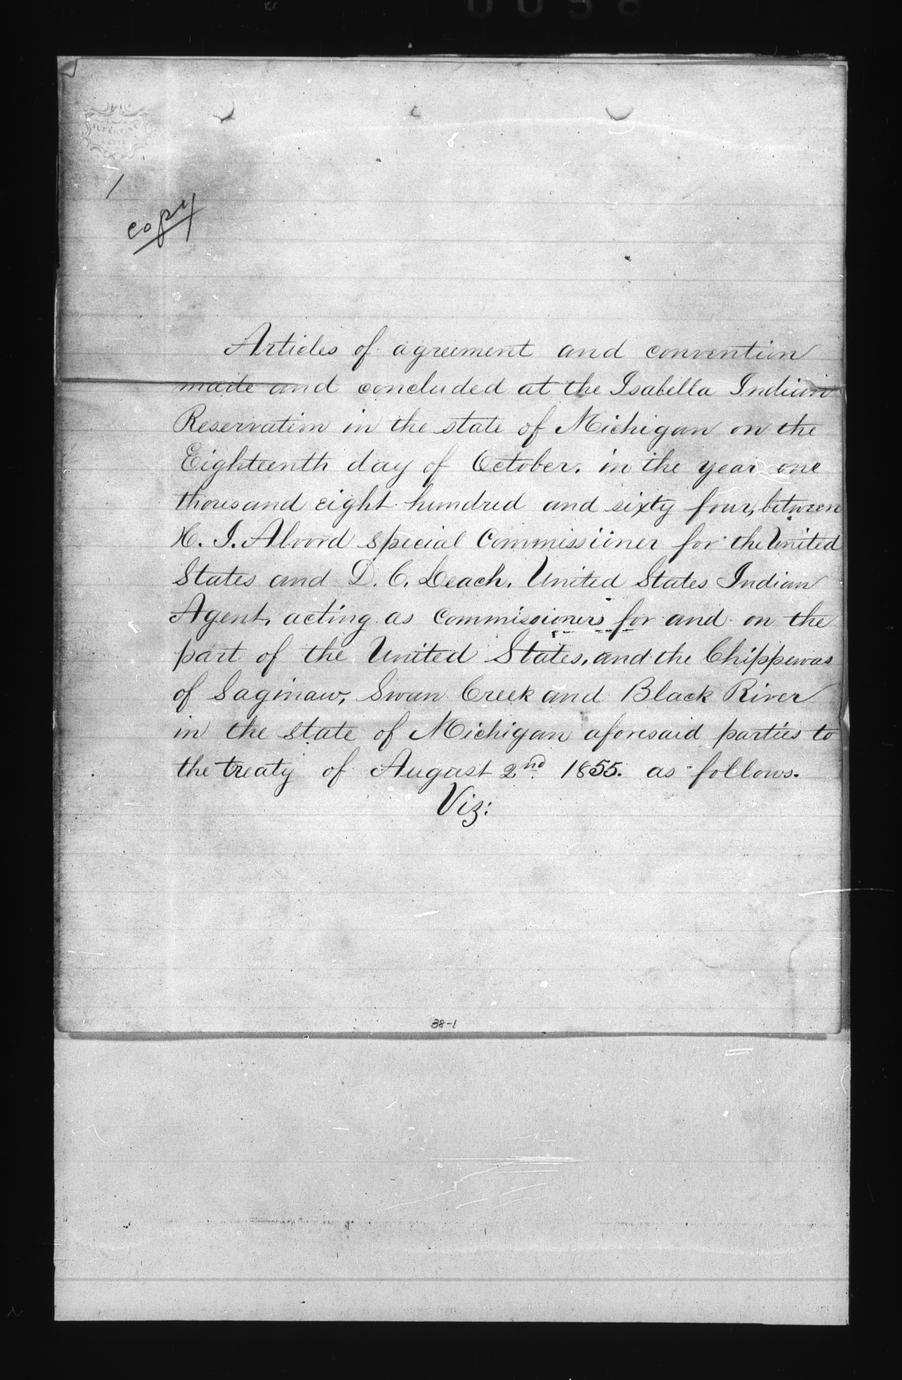 1
copy
Articles of agreement and convention
made and concluded at the Isabella Indian
Reservation in the state of Michigan on the
Eighteenth day of October. in the year one
thousand eight hundred and sixty four, between
H. I. Alvord special Commissioner for the United
States and D. C. Leach. United States Indian
Agent, acting as commissioners for and on the
part of the United States, and the Chippewas
of Saginaw, Swan Creek and Black River
in the state of Michigan aforesaid parties to
the treaty of August 2nd 1855. as follows.
Viz:
38-1